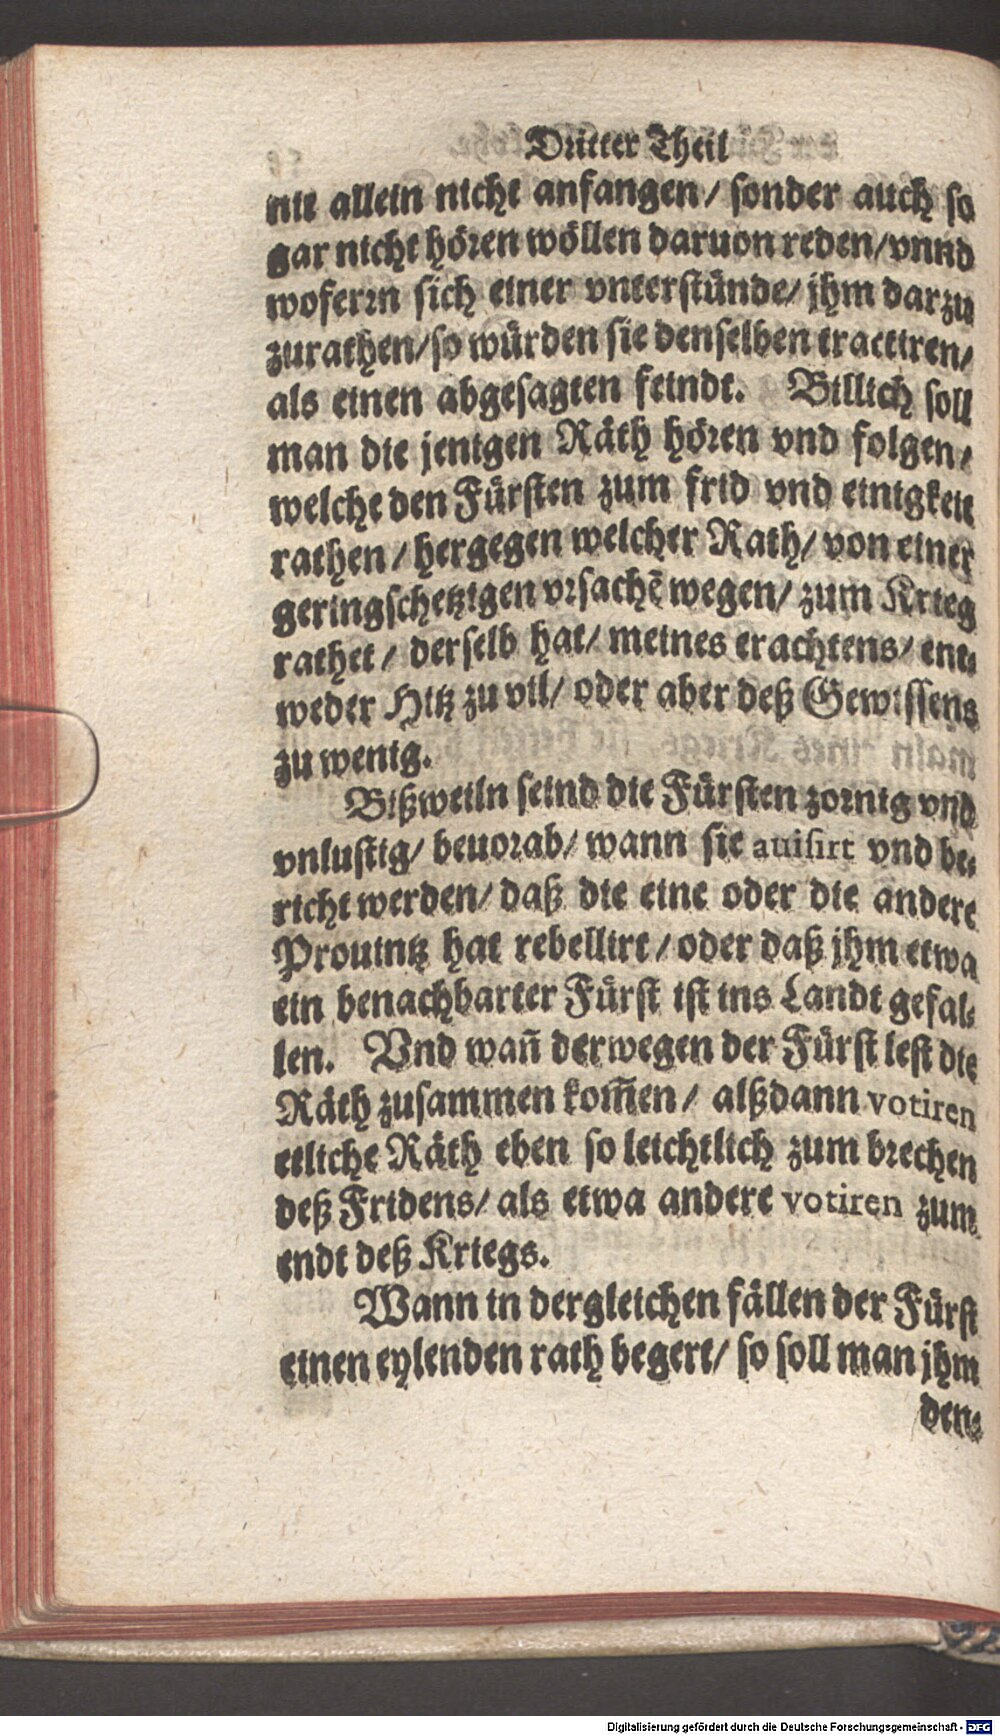 Dritter Theil
nit allein nicht anfangen/ sonder auch so
gar nicht hören wöllen daruon reden/ vnnd
woferrn sich einer vnterstünde/ jhm darzu
zurathen/ so würden sie denselben tractiren/
als einen abgesagten feindt. Billich soll
man die jenigen Räth hören vnd folgen/
welche den Fürsten zum frid vnd einigkeit
rathen/ hergegen welcher Rath/ von einer
geringschetzigen vrsachē wegen/ zum Krieg
rathet/ derselb hat/ meines erachtens/ ent-
weder Hitz zu vil/ oder aber deß Gewissens
zu wenig.
Bißweiln seind die Fürsten zornig vnd
vnlustig/ beuorab/ wann sie auisirt vnd be-
richt werden/ daß die eine oder die andere
Prouintz hat rebellirt/ oder daß jhm etwa
ein benachbarter Fürst ist ins Landt gefal-
len. Vnd wañ derwegen der Fürst lest die
Räth zusammen kom̃en/ alßdann votiren
etliche Räth eben so leichtlich zum brechen
deß Fridens/ als etwa andere votiren zum
endt deß Kriegs.
Wann in dergleichen fällen der Fürst
einen eylenden rath begert/ so soll man jhm
den-
Digitalisierung gefördert durch die Deutsche Forschungsgemeinschaft - DFG